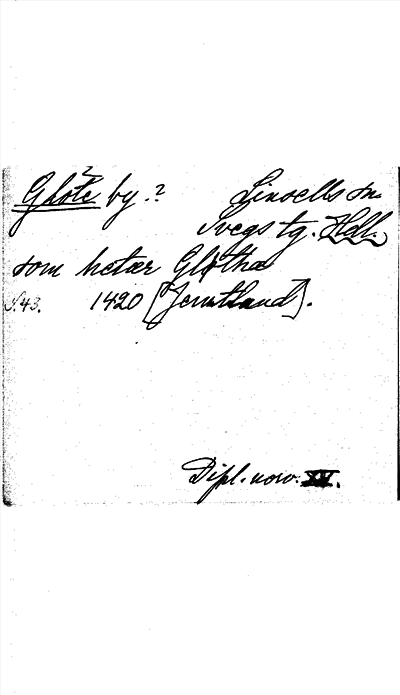 Glöte by.? Linsells sn.
Svegs tg. Hdl.
som hetær Gløthæ
S.43. 1420 [Jemtland].
Dipl. norv. XV.